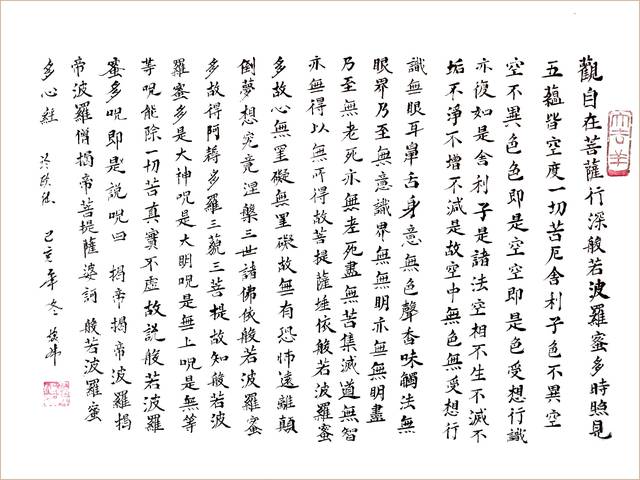 觀自在菩薩行深般若波羅蜜多時照見
五蘊皆空度一切苦厄舍利子色不異空
空不異色色即是空空即是色受想行識
亦復如是舍利子是諸法空相不生不滅不
垢不淨不增不減是故空中無色無受想行
識無眼耳鼻舌身意無色聲香味觸法無
眼界乃至無意識界無無明亦無無明盡
乃至無老死亦無老死盡無苦集滅道無智
亦無得以無所得故菩提薩埵依般若波羅蜜
多故心無罣礙無罣礙故無有恐怖遠離顛
倒夢想究竟涅槃三世諸佛依般若波羅蜜
多故得阿耨多羅三藐三菩提故知般若波
羅蜜多是大神呪是大明呪是無上呪是無等
等呪能除一切苦真實不虛故說般若波羅
蜜多呪即是說呪曰 揭帝揭帝波羅揭
帝波羅僧揭帝菩提薩婆訶 般若波羅蜜
多心經 己亥年冬